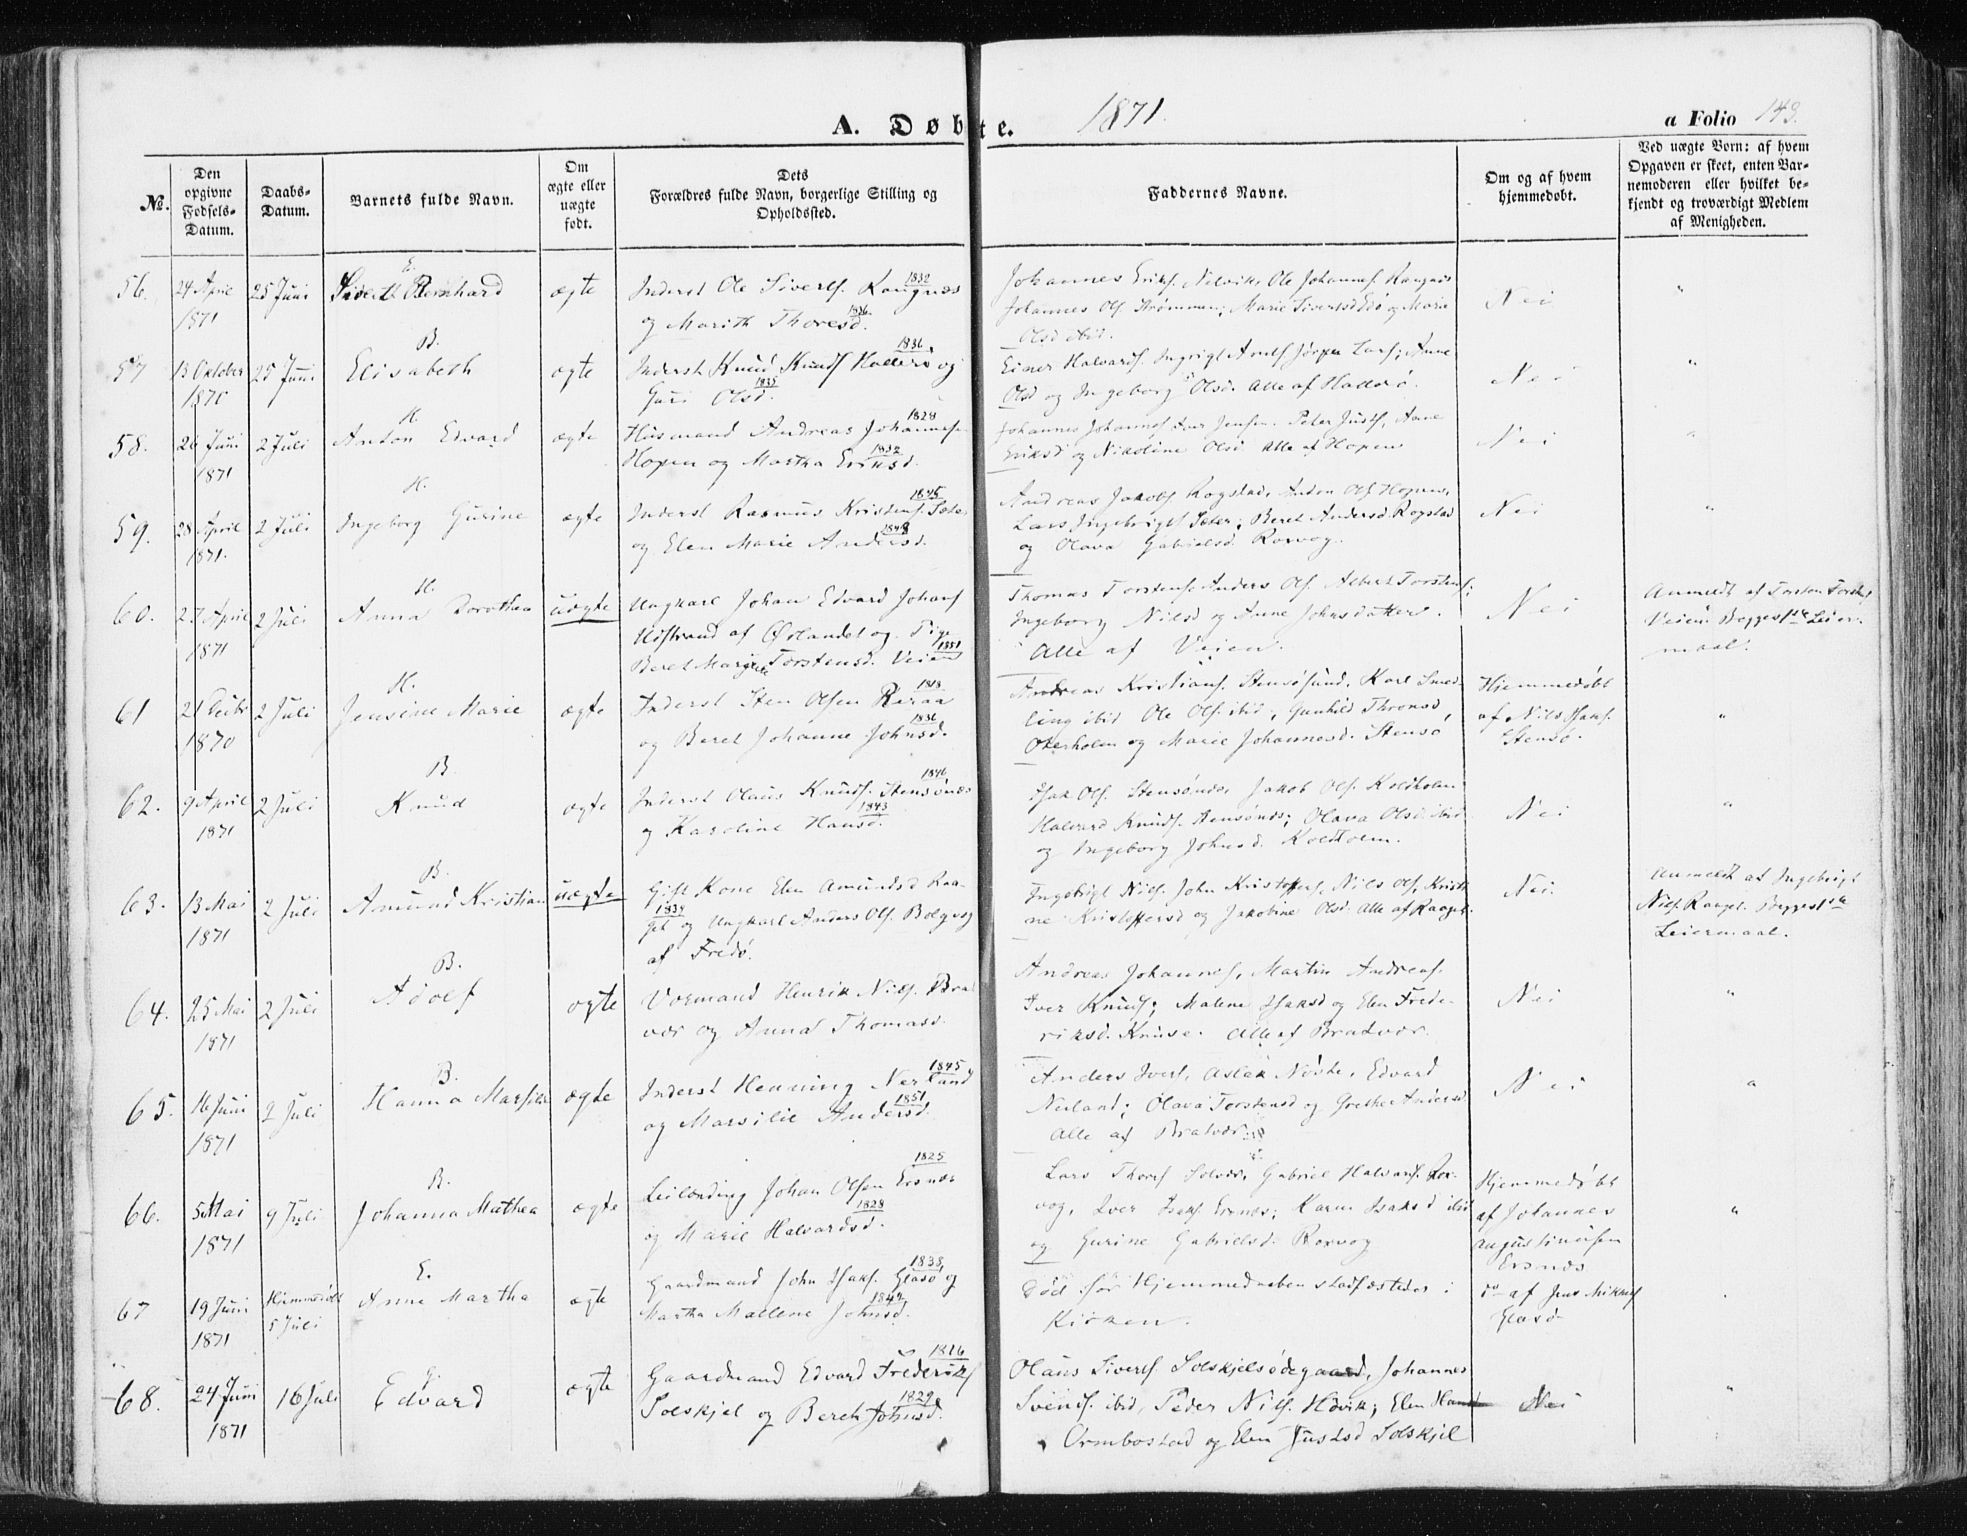 A. Døbte. 1871. a Folio 143.
№.
Den opgivne Fødsels-Datum.
Daabs-Datum.
Barnets fulde Navn.
Om ægte eller uægte født.
Dets Forældres fulde Navn, borgerlige Stilling og Opholdssted.
Faddernes Navne.
Om og af hvem hjemmedøbt.
Ved uægte Børn: af hvem Opgaven er skeet, enten Barnemoderen eller hvilket bekjendt og troværdigt Medlem af Menigheden.
56. 24 April 1871 25 Juni E. Sivert Bernhard ægte
Inderst Ole Siverts. Kongnæs 1832
og Marith Thoresd. 1836.
Johannes Eriks. Nelvik, Ole Johannes. Kongnæs
Johannes Ols. Strømmen; Marie Sivertsd Edø og Marie
Olsd ibid.
Nei "
57 13 Oktober 1870 25 Juni B. Elisabeth ægte
Inderst Knud Knuds Hallerø og 1836
Guri Olsd. 1835
Einer Halvards. Ingrigt Arnts Jørgen Lars; Anne
Olsd og Ingeborg Olsd. Alle af Hallerø.
Nei "
58. 26 Juni 1871 2 Juli H. Anton Edvard ægte
Husmand Andreas Johannesen 1828
Hopen og Martha Eriksd. 1832
Johannes Johannes. Jens Jensen. Peter Justs, Anne
Eriksd og Nikoline Olsd. Alle af Hopen
Nei "
59. 28 April 1871. 2 Juli H. Ingeborg Gurine ægte
Inderst Rasmus Kristens. Sæter 1845
og Elen Marie Andersd. 1848
Andreas Jakobs Rogstad, Anton Ols Hopen,
Lars Ingebrigts Sæter; Beret Andersd. Rogstad
og Olava Gabrielsd. Roxvog.
Nei "
60. 27 April 1871 2 Juli H. Anna Dorothea uægte
Ungkarl Johan Edvard Johans
Uistrand af Ørlandet og Pige
Beret Margrete Torstensd. Veien 1851
Thomas Torstens. Anders Ols. Albert Torstens;
Ingeborg Nilsd og Anne Johnsdatter.
Alle af Veien.
Nei
Anmeldt af Torsten Torstens
Veien. Begges 1ste Leier-
maal.
61 21 1870 2 Juli H. Jensine Marie ægte
Inderst Sten Olsen 1818
og Beret Johanne Johnsd. 1836
Andreas Kristians. Stensøsund, Karl Smed-
ling ibid Ole Ols. ibid, Gunhild Thronsd,
Oterholm og Marie Johannesd. Stensø
Hjemmedøbt
af Nils Isaks.
Stensø.
"
62. 9 April 1871 2 Juli B. Knud ægte
Inderst Olaus Knuds. Stensønæs 1846
og Karoline Hansd. 1843
Isak Ols. Stensønæs, Jakob Ols. Koldholm
Halvard Knuds. Stensønæs; Olava Olsd. ibid
og Ingeborg Johnsd. Koldholm.
Nei "
63. 13 Mai 1871 2 Juli B. Amund Kristian uægte
Gift Kone Elen Amundsd Raa-
get 1839 og Ungkarl Anders Ols. Bolgvog
af Fredø.
Ingebrigt Nils. John Kristoffers, Nils Ols, Kristi-
ne Kristoffersd og Jakobine Olsd. Alle af Raaget.
Nei.
Anmeldt af Ingebrigt
Nils. Raaget. Begges 1ste
Leiermaal.
64. 25 Mai 1871 2 Juli B. Adolf ægte
Vormand Henrik Nils. Brat
vær og Anna Thomasd.
Andreas Johannes, Martin Andreas.
Iver Knuds; Malene Isaksd og Elen Frede-
riksd. Knuse. Alle af Bratvær.
Nei "
65. 16 Juni 1871 2 Juli B. Hanna Marsilie ægte
Inderst Henning Nerland 1845
og Marsilie Andersd. 1851
Anders Ivers, Aslak Nøste, Edvard
Nerland; Olava Torstensd og Grethe Andersd
Alle af Bratvær.
Nei "
66. 5 Mai 1871 9 Juli B. Johanna Mathea ægte
Leilænding Johan Olsen Ersnæs 1825
og Marie Halvardsd. 1828
Lars Thors Solvær, Gabriel Halvars. Rox-
vog, Iver Isaks Ersnæs; Karen Isaksd ibid
og Gurine Gabrielsd. Roxvog
Hjemmedøbt
af Johannes
Augustinusen
Ersnæs
"
67 19 Juni 1871 Hjemmedøbt 5 Juli E. Anne Martha ægte
Gaardmand John Isaks. Glasø og 1838
Martha Mallene Johnsd. 1842
Død før Hjemmedaaben stadfæstedes i
Kirken.
do af Jens Mikkels
Glasø
68. 24 Juni 1871 16 Juli E. Edvard ægte
Gaardmand Edvard Frederiks 1816
Solskjel og Bereth Johnsd. 1829
Olaus Siverts. Solskjelsødegaard, Johannes
Svends. ibid, Peder Nils. Høvik; Elen Hansd
Ormbostad og Elen Justsd Solskjel
Nei "